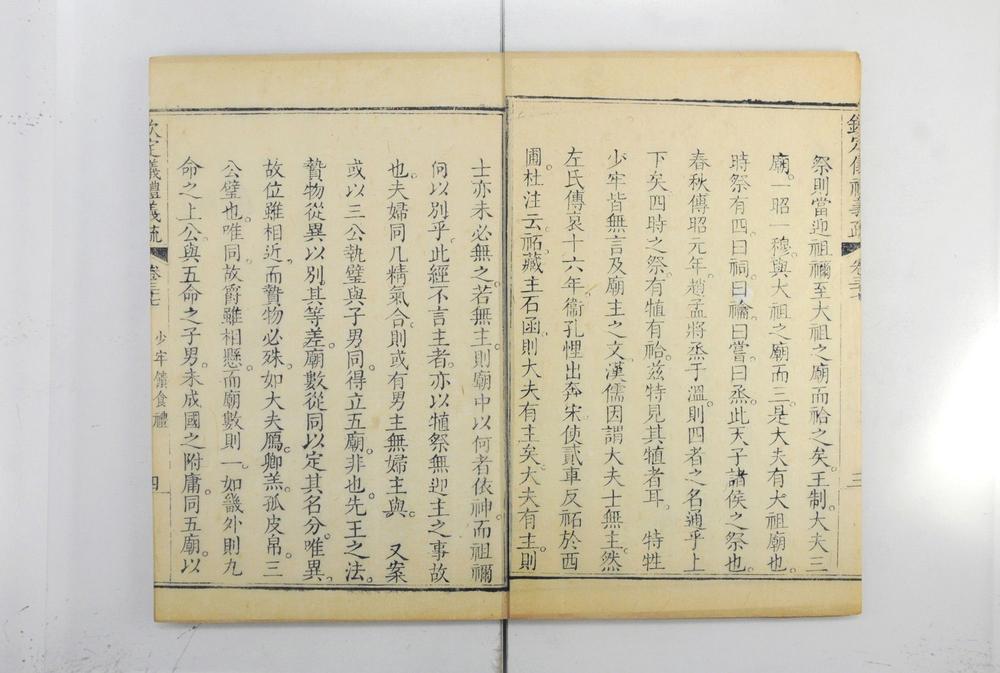 欽定儀禮義疏 卷三十七 三
祭則當迎祖禰至大祖之廟而祫之矣。王制大夫三
廟。一昭一穆。與大祖之廟而三。是大夫有大祖廟也。
時祭有四曰祠。曰禴。曰嘗。曰烝。此天子諸侯之祭也。
春秋傳昭元年。趙孟將烝于溫。則四者之名通乎上
下矣。四時之祭。有犆有祫。茲特見其犆者耳。 特牲
少牢皆無言及廟主之文。漢儒因謂大夫士無主。然
左氏傳哀十六年。衞孔悝出奔宋。使貳車反祏於西
圃。杜注云。祏。藏主石函。則大夫有主矣。大夫有主。則
士亦未必無之。若無主。則廟中以何者依神。而祖禰
何以別乎。此經不言主者。亦以犆祭無迎主之事故
也。夫婦同几。精氣合。則或有男主無婦主與。 又案
或以三公執璧與子男同。得立五廟。非也。先王之法。
贄物從異以別其等差。廟數從同以定其名分。唯異。
故位雖相近。而贄物必殊。如大夫鴈。卿羔。孤皮帛。三
公璧也。唯同。故爵雖相懸。而廟數則一。如畿外則九
命之上公。與五命之子男。未成國之附庸。同五廟。以
欽定儀禮義疏 卷三十七 少牢饋食禮 四